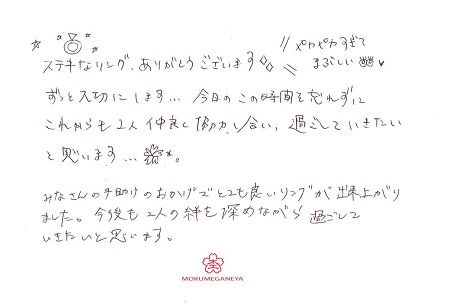 ステキなリング、ありがとうございます
ピカピカすぎて
まぶしい
ずっと大切にします… 今日のこの時間を忘れずに
これからも2人仲良く協力し合い、過ごしていきたい
と思います…。
みなさんの手助けのおかげでとても良いリングが出来上がり
ました。今後も2人の絆を深めながら過ごして
いきたいと思います。
MOKUMEGANEYA